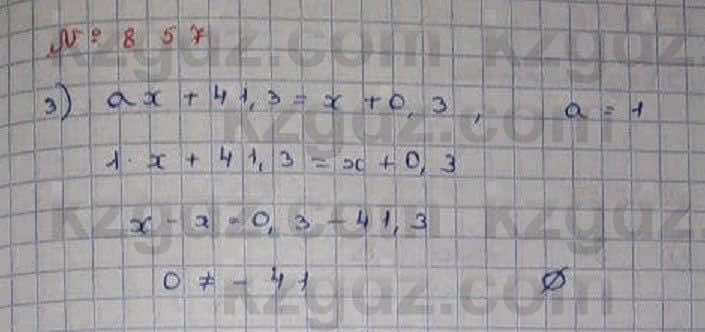 № 857
kzgdz.com kzgdz.com
3) ax + 41,3 = x + 0,3, a = 1
kzgdz.com
1·x + 41,3 = x + 0,3
x - x = 0,3 - 41,3
kzgdz.com kzgdz.com
0 ≠ - 41 ∅
kzgdz.com